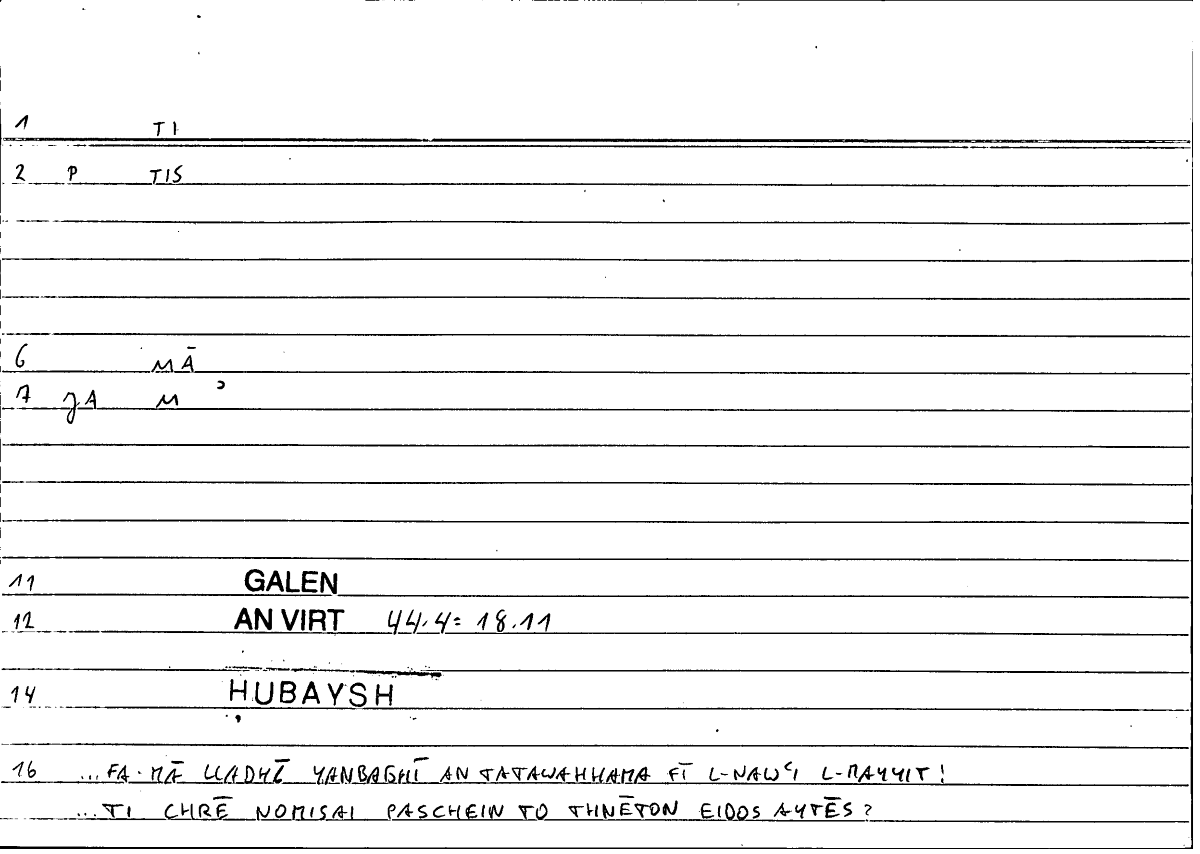 1 TI
2 P TIS
6 MĀ
7 JA M ʾ
11 GALEN
12 AN VIRT 44.4 = 18.11
14 ḤUBAYSH
16 ...FA-MĀ LLADHĪ YANBAGHĪ AN TATAWAHHAMA FĪ L-NAWʿI L-MAYYIT!
...TI CHRĒ NOMISAI PASCHEIN TO THNĒTON EIDOS AYTĒS?